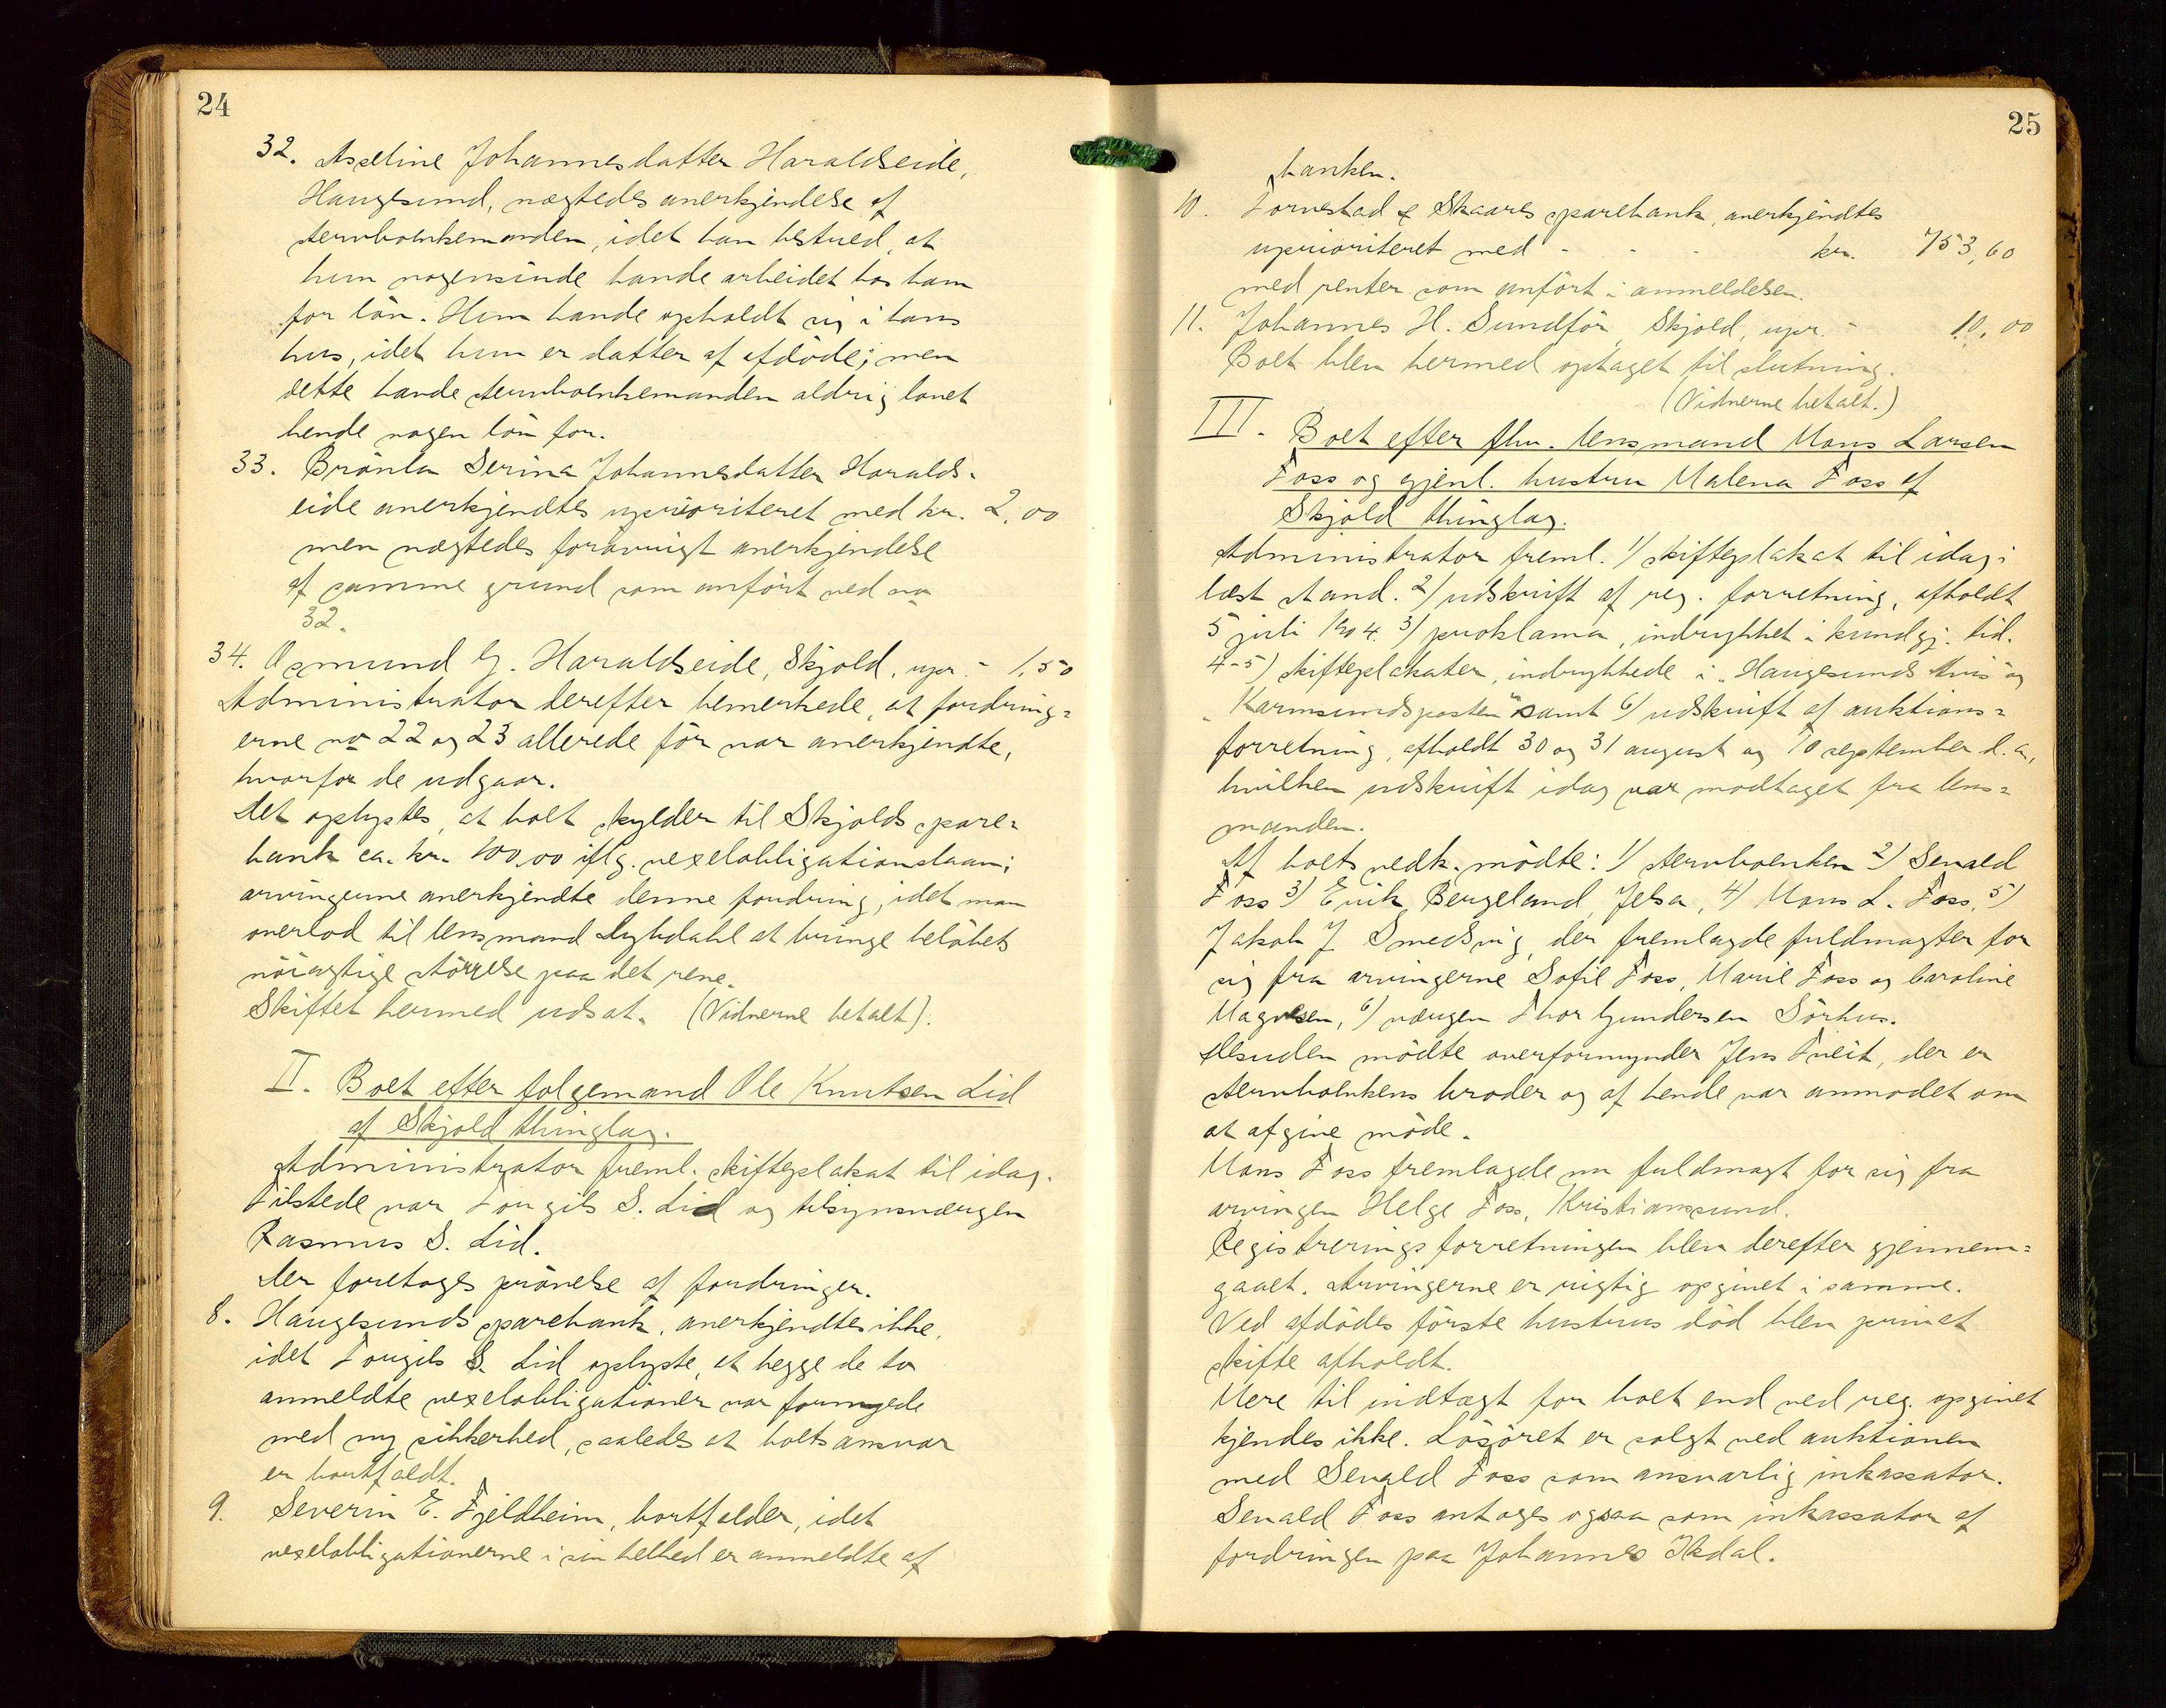 24
32. Axeline Johannesdatter Haraldseide,
Haugesund, nægtedes anerkjendelse af
stervboenkemanden, idet han bestred, at
hun nogensinde havde arbeidet hos ham
for løn. Hun havde opholdt sig i hans
hus, idet hun er datter af afdøde; men
dette havde stervboenkemanden aldrig lovet
hende nogen løn for.
33. Brønla Serina Johannesdatter Haralds-
eide anerkjendtes uprioriteret med kr. 2,00
men nægtedes forøvrigt anerkjendelse
af samme grund som anført ved no
32.
34. Osmund G. Haraldseide, Skjold, upr. - 1,50
Administrator derefter bemerkede, at fordring=
erne no 22 og 23 allerede før var anerkjendte,
hvorfor de udgaar.
Det oplystes, at boet skylder til Skjolds spare=
bank ca. kr. 100,00 iflg. vexelobligationslaan;
arvingerne anerkjendte denne fordring, idet man
overlod til lensmand Lyhdahl at bringe beløbets
nøiagtige størrelse paa det rene.
Skiftet hermed udsat. (Vidnerne betalt).
II. Boet efter folgemand Ole Knutsen Lid
af Skjold thinglag.
Administrator freml. skifteplakat til idag.
Tilstede var Torgils S. Lid og tilsynsværgen
Rasmus S. Lid.
Der foretoges prøvelse af fordringer.
8. Haugesunds sparebank, anerkjendtes ikke,
idet Torgils S. Lid oplyste, at begge de to
anmeldte vexelobligationer var fornyede
med ny sikkerhed, saaledes at boets ansvar
er bortfaldt.
9. Severin E. Fjeldheim, bortfalder, idet
vexelobligationerne i sin helhed er anmeldte af
25
banken.
10. Tornestad & Skaares sparebank, anerkjendtes
uprioriteret med - - - kr. 753,60
med renter som anført i anmeldelsen.
11. Johannes H. Sundfør, Skjold, upr. - 10,00
Boet blev hermed optaget til slutning.
(Vidnerne betalt.)
III. Boet efter fhv. lensmand Mons Larsen
Foss og gjenl. hustru Malena Foss af
Skjold thinglag.
Administrator freml. 1) skifteplakat til idag i
læst stand. 2) udskrift af reg. forretning, afholdt
5 juli 1904. 3) proklama, indrykket i kundgj. tid.
4-5) skifteplakater, indrykkede i "Haugesunds Avis" og
"Karmsundsposten" samt 6) udskrift af auktions=
forretning, afholdt 30 og 31 august og 10 september d. a,
hvilken udskrift idag var modtaget fra lens=
manden.
Af boets vedk. mødte: 1) stervboenken 2) Sevald
Foss 3) Erik Bergeland, Jelsa, 4) Mons L. Foss, 5)
Jakob J. Smedsvig, der fremlagde fuldmagter for
sig fra arvingerne Sofie Foss, Marie Foss og Caroline
Magnesen, 6) værgen Thor Gundersen Sørhus.
Desuden mødte overformynder Jens Tveit, der er
stervboenkens broder og af hende var anmodet om
at afgive møde.
Mons Foss fremlagde nu fuldmagt for sig fra
arvingen Helge Foss, Kristianssund.
Registreringsforretningen blev derefter gjennem=
gaaet. Arvingerne er rigtig opgivet i samme.
Ved afdødes første hustrus død blev privat
skifte afholdt.
Mere til indtægt for boet end ved reg. opgivet
kjendes ikke. Løsøret er solgt ved auktionen
med Sevald Foss som ansvarlig inkassator.
Sevald Foss antoges ogsaa som inkassator af
fordringen paa Johannes Ikdal.